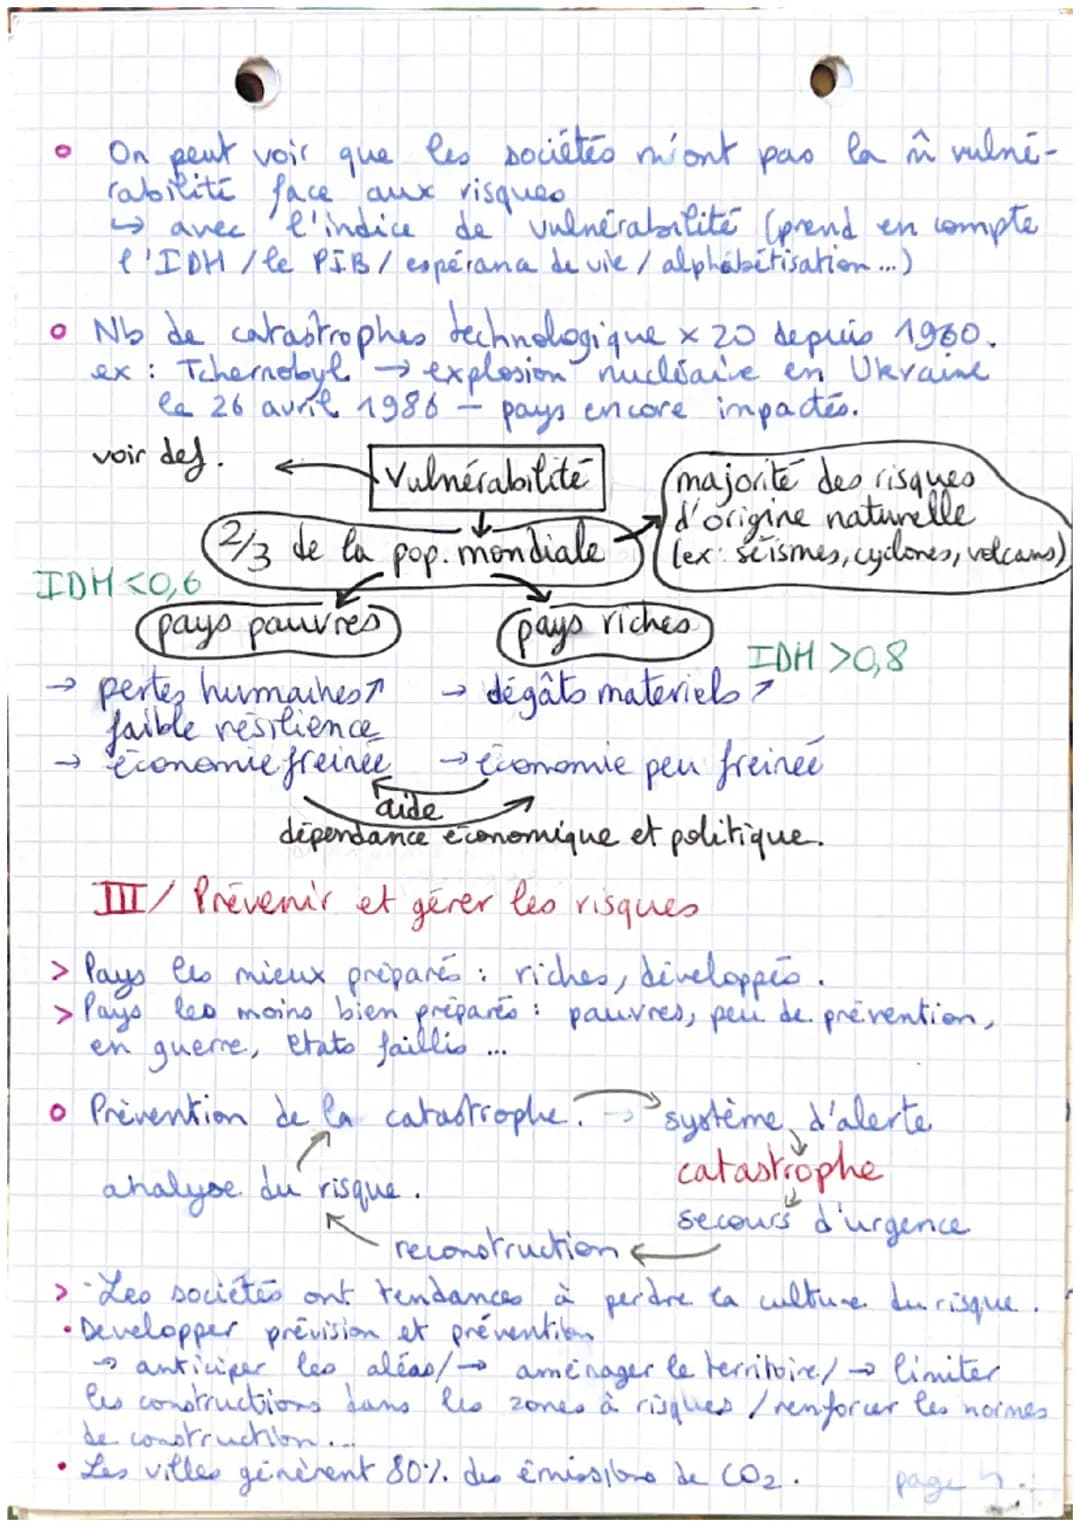 On peut voir que les sociétés n'ont pas la m̂ vulné-
rabilité face aux risques
↳ avec l'indice de vulnérabilité (prend en compte
l'IDH / le PIB / espérana de vie / alphabétisation...)
Nb de catastrophes technologique x 20 depuis 1960.
ex : Tchernobyl → explosion nucléaire en Ukraine
le 26 avril 1986 – pays encore impactés.
voir def. ← Vulnérabilité
majorité des risques
d'origine naturelle
(ex: séismes, cyclones, volcans)
2/3 de la pop. mondiale
IDH <0,6
pays pauvres
pays riches
IDH >0,8
→ pertes humaines ↗ → dégâts materiels ↗
faible résilience
→ économie freinée → économie peu freinée
aide
dépendance économique et politique.
III/ Prévenir et gérer les risques
> Pays les mieux préparés : riches, développés.
> Pays les moins bien préparés : pauvres, peu de prévention,
en guerre, etats faillis ...
Prévention de la catastrophe. → système d'alerte
catastrophe
analyse du risque.
secours d'urgence
reconstruction
> - Les sociétés ont tendances à perdre la culture du risque.
• Developper prévision et prévention
→ anticiper les aléas/→ aménager le territoire/ → limiter
les constructions dans les zones à risques / renforcer les normes
de construction...
• Les villes génèrent 80% des émissions de CO2.
page